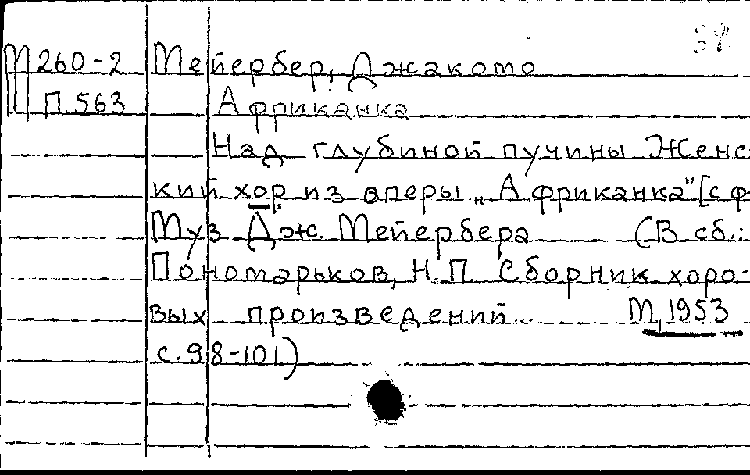 М 260-2 Мейербер, Джакомо
П 563 Африканка
Над глубиной пучины Женс-
кий хор из оперы „Африканка" [с ф
Муз Дж. Мейербера (В сб.:
Пономарьков, Н.П. Сборник хоро-
вых произведений. М, 1953
с. 98-101)